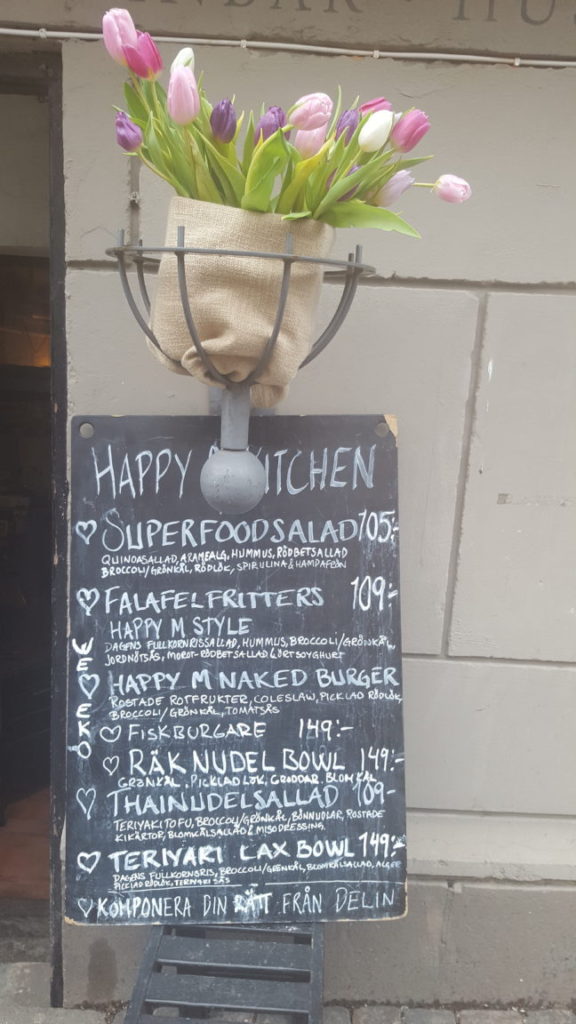 HAPPY KITCHEN
SUPERFOODSALAD 105:-
QUINOASALLAD, ARAMEALG, HUMMUS, RÖDBETSALLAD
BROCCOLI/GRÖNKÅL, RÖDLÖK, SPIRULINA & HAMPAFRÖN
FALAFELFRITTERS 109:-
HAPPY M STYLE
DAGENS FULLKORNRISSALLAD, HUMMUS, BROCCOLI/GRÖNKÅL,
JORDNÖTSÅS, MOROT-RÖDBETSALLAD & ÖRTSOYGHURT
WE ♡ EKO
HAPPY M NAKED BURGER
ROSTADE ROTFRUKTER, COLESLAW, PICKLAD RÖDLÖK,
BROCCOLI/GRÖNKÅL, TOMATSÅS
FISKBURGARE 149:-
RÄK NUDEL BOWL 149:-
GRÖNKÅL, PICKLAD LÖK, GRODDAR, BLOMKÅL
THAINUDELSALLAD 109-
TERIYAKITOFU, BROCCOLI/GRÖNKÅL, BÖNNUDLAR, ROSTADE
KIKÄRTOR, BLOMKÅLSALLAD & MISODRESSING
TERIYAKI LAX BOWL 149:-
DAGENS FULLKORNSRIS, BROCCOLI/GRÖNKÅL, BLOMKÅLSALLAD, ALGER
PICKLAD RÖDLÖK, TERIYAKI SÅS
KOMPONERA DIN RÄTT FRÅN DELIN